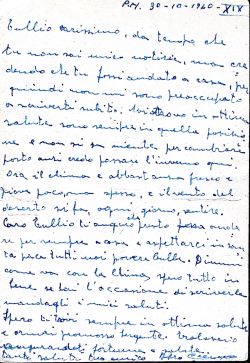 P.M. 30-10-1940-XIX
Tullio carissimo, da tempo che
tu non sai mie notizie, ma cre
dendo che tu fossi andato a casa, per
quindi non mi sono preoccupato
a scriverti subito. Mi trovo in ottima
salute, sono sempre in quella posizio
ne e non si sa niente per cambiare
posto anzi credo passare l'inverno qui.
Ora il clima è abbastanza fresco e
piove poco, ma spesso, e il vento del
deserto si fa, ogni giorno, sentire.
Caro Tullio ti auguro che presto possa andare
se per sempre a casa e aspettarci in san
ta pace tutti noi poveri
come va con la Clima, spero tutto in
bene se hai l'occasione di scriverle
mandagli i miei saluti.
Spero di trovarti sempre in ottima salute
e ormai
augurandoti fortuna e
tanti saluti tuo amico